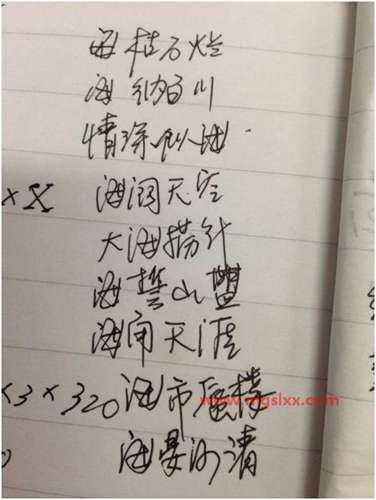 海枯石烂
海纳百川
情深似海.
×X 海阔天空
大海捞针
海誓山盟
海角天涯
×3×320 海市蜃楼
www.mgslxx.com
海晏河清